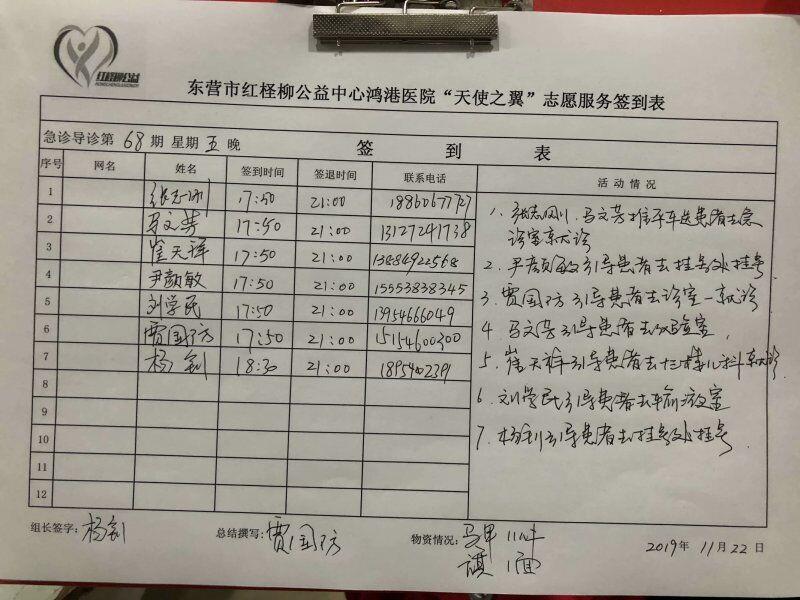 红柽柳公益
东营市红柽柳公益中心鸿港医院“天使之翼”志愿服务签到表
急诊导诊第 68 期 星期 五 晚 签 到 表
序号 网名 姓名 签到时间 签退时间 联系电话 活动情况
1 张志刚 17:50 21:00 18860677727
2 马文芳 17:50 21:00 13127241738
3 崔天祥 17:50 21:00 13884922568
4 尹颜敏 17:50 21:00 15553838345
5 刘学民 17:50 21:00 13954666049
6 贾国防 17:50 21:00 15154600300
7 杨钊 18:30 21:00 1895402391
8
9
10
11
12
1、张志刚、马文芳推平车送患者去急
诊室就诊
2、尹颜敏引导患者去挂号处挂号
3、贾国防引导患者去诊室一就诊
4、马文芳引导患者去化验室
5、崔天祥引导患者去十三楼儿科就诊
6、刘学民引导患者去输液室
7、杨钊引导患者去挂号处挂号
组长签字：杨钊 总结撰写：贾国防 物资情况：马甲 11件
旗 1面
2019年 11月 22日